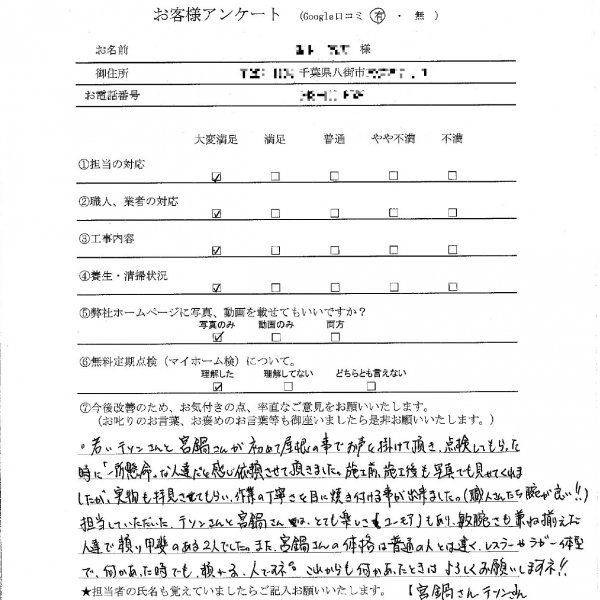 お客様アンケート (Google口コミ 有 ・ 無 )
お名前 様
御住所 千葉県八街市
お電話番号
大変満足 満足 普通 やや不満 不満
①担当の対応
②職人、業者の対応
③工事内容
④養生・清掃状況
⑤弊社ホームページに写真、動画を載せてもいいですか?
写真のみ 動画のみ 両方
⑥無料定期点検(マイホーム検)について。
理解した 理解してない どちらとも言えない
⑦今後改善のため、お気付きの点、率直なご意見をお願いいたします。
(お叱りのお言葉、お褒めのお言葉等も御座いましたら是非お願いいたします。)
。若いテソンさんと宮鍋さんが初めて屋根の事でお声を掛けて頂き、点検してもらった
時に「一所懸命」な人達だと感じ依頼させて頂きました。施工前、施工後も写真でも見せてくれま
したが、実物も拝見させてもらい、作業の丁寧さを目に焼き付ける事が出来ました。(職人さんたち腕が良い!!)
担当していただいた、テソンさんと宮鍋さんは、とても楽しさ(ユーモア)もあり、敏腕さも兼ね揃えた
人達で頼り甲斐のある2人でした。また、宮鍋さんの体格は普通の人とは違く、レスラーやラガー体型
で、何かあった時でも、頼れる、人ですネ。これからも何かあったときはよろしくお願いしますネ!!
★担当者の氏名も覚えていましたらご記入お願いします。 【宮鍋さん テソンさん